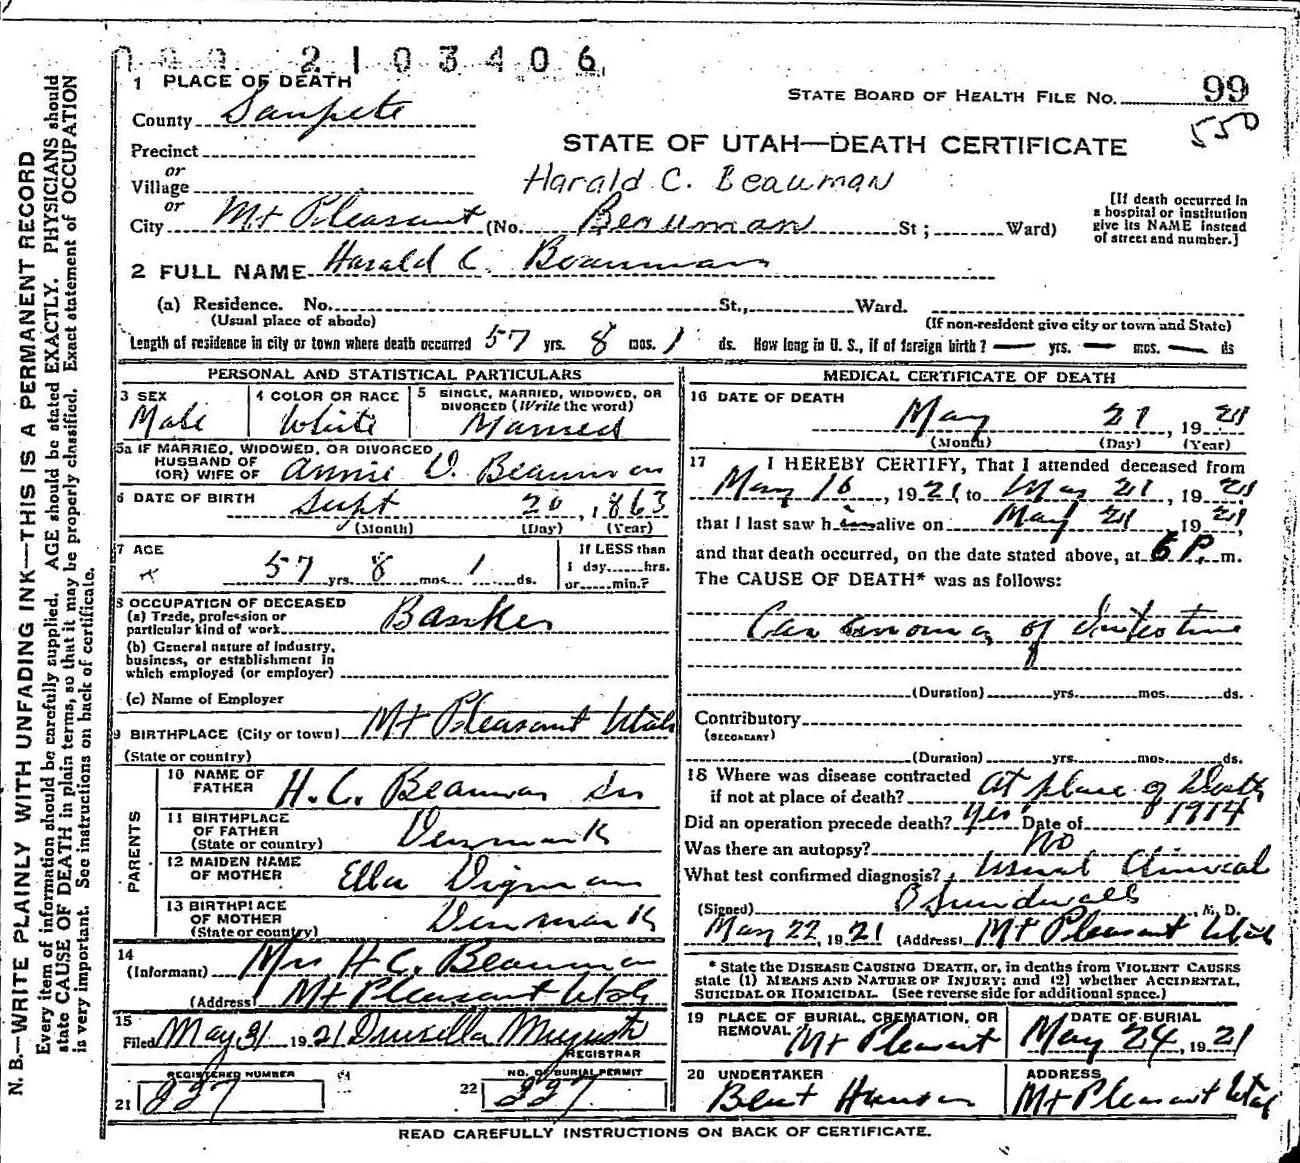 2103406
1 PLACE OF DEATH
STATE BOARD OF HEALTH FILE NO. 99
County Sanpete
550
STATE OF UTAH—DEATH CERTIFICATE
Precinct
or
Village
Harald C. Beauman
or
City Mt Pleasant (No. Beauman St; Ward)
[If death occurred in
a hospital or institution
give its NAME instead
of street and number.]
2 FULL NAME Harald C. Beauman
(a) Residence. No. St., Ward.
(Usual place of abode) (If non-resident give city or town and State)
Length of residence in city or town where death occurred 57 yrs. 8 mos. 1 ds. How long in U. S., if of foreign birth? — yrs. — mos. — ds
PERSONAL AND STATISTICAL PARTICULARS
3 SEX Male
4 COLOR OR RACE White
5 SINGLE, MARRIED, WIDOWED, OR
DIVORCED (Write the word)
Married
5a IF MARRIED, WIDOWED, OR DIVORCED
HUSBAND OF
(OR) WIFE OF Annie V. Beauman
6 DATE OF BIRTH Sept 20, 1863
(Month) (Day) (Year)
7 AGE 57 yrs 8 mos 1 ds.
If LESS than
1 day hrs.
or min.?
8 OCCUPATION OF DECEASED
(a) Trade, profession or
particular kind of work Banker
(b) General nature of industry,
business, or establishment in
which employed (or employer)
(c) Name of Employer
9 BIRTHPLACE (City or town) Mt Pleasant Utah
(State or country)
PARENTS
10 NAME OF
FATHER H.C. Beauman Snr
11 BIRTHPLACE
OF FATHER
(State or country) Denmark
12 MAIDEN NAME
OF MOTHER Ella Digman
13 BIRTHPLACE
OF MOTHER
(State or country) Denmark
14
(Informant) Mrs H C. Beauman
(Address) Mt Pleasant Utah
15
Filed May 31 1921 Drusilla
REGISTRAR
REGISTERED NUMBER
21 227
NO. OF BURIAL PERMIT
22 227
MEDICAL CERTIFICATE OF DEATH
16 DATE OF DEATH
May 21, 1921
(Month) (Day) (Year)
17 I HEREBY CERTIFY, That I attended deceased from
May 16, 1921, to May 21, 1921
that I last saw him alive on May 21 1921,
and that death occurred, on the date stated above, at 6 P. m.
The CAUSE OF DEATH* was as follows:
Carcinoma of Intestine
(Duration) yrs. mos. ds.
Contributory
(SECONDARY)
(Duration) yrs. mos. ds.
18 Where was disease contracted
if not at place of death? At place of Death
Did an operation precede death? Yes Date of 1914
Was there an autopsy? No
What test confirmed diagnosis? Usual Clinical
(Signed) B Sundwall, M. D.
May 22, 1921 (Address) Mt Pleasant Utah
* State the DISEASE CAUSING DEATH, or, in deaths from VIOLENT CAUSES
state (1) MEANS AND NATURE OF INJURY; and (2) whether ACCIDENTAL,
SUICIDAL OR HOMICIDAL. (See reverse side for additional space.)
19 PLACE OF BURIAL, CREMATION, OR
REMOVAL Mt Pleasant
DATE OF BURIAL
May 24, 1921
20 UNDERTAKER
Bent Hansen
ADDRESS
Mt Pleasant Utah
READ CAREFULLY INSTRUCTIONS ON BACK OF CERTIFICATE.
N. B.—WRITE PLAINLY WITH UNFADING INK—THIS IS A PERMANENT RECORD
Every item of information should be carefully supplied. AGE should be stated EXACTLY. PHYSICIANS should
state CAUSE OF DEATH in plain terms, so that it may be properly classified. Exact statement of OCCUPATION
is very important. See instructions on back of certificate.